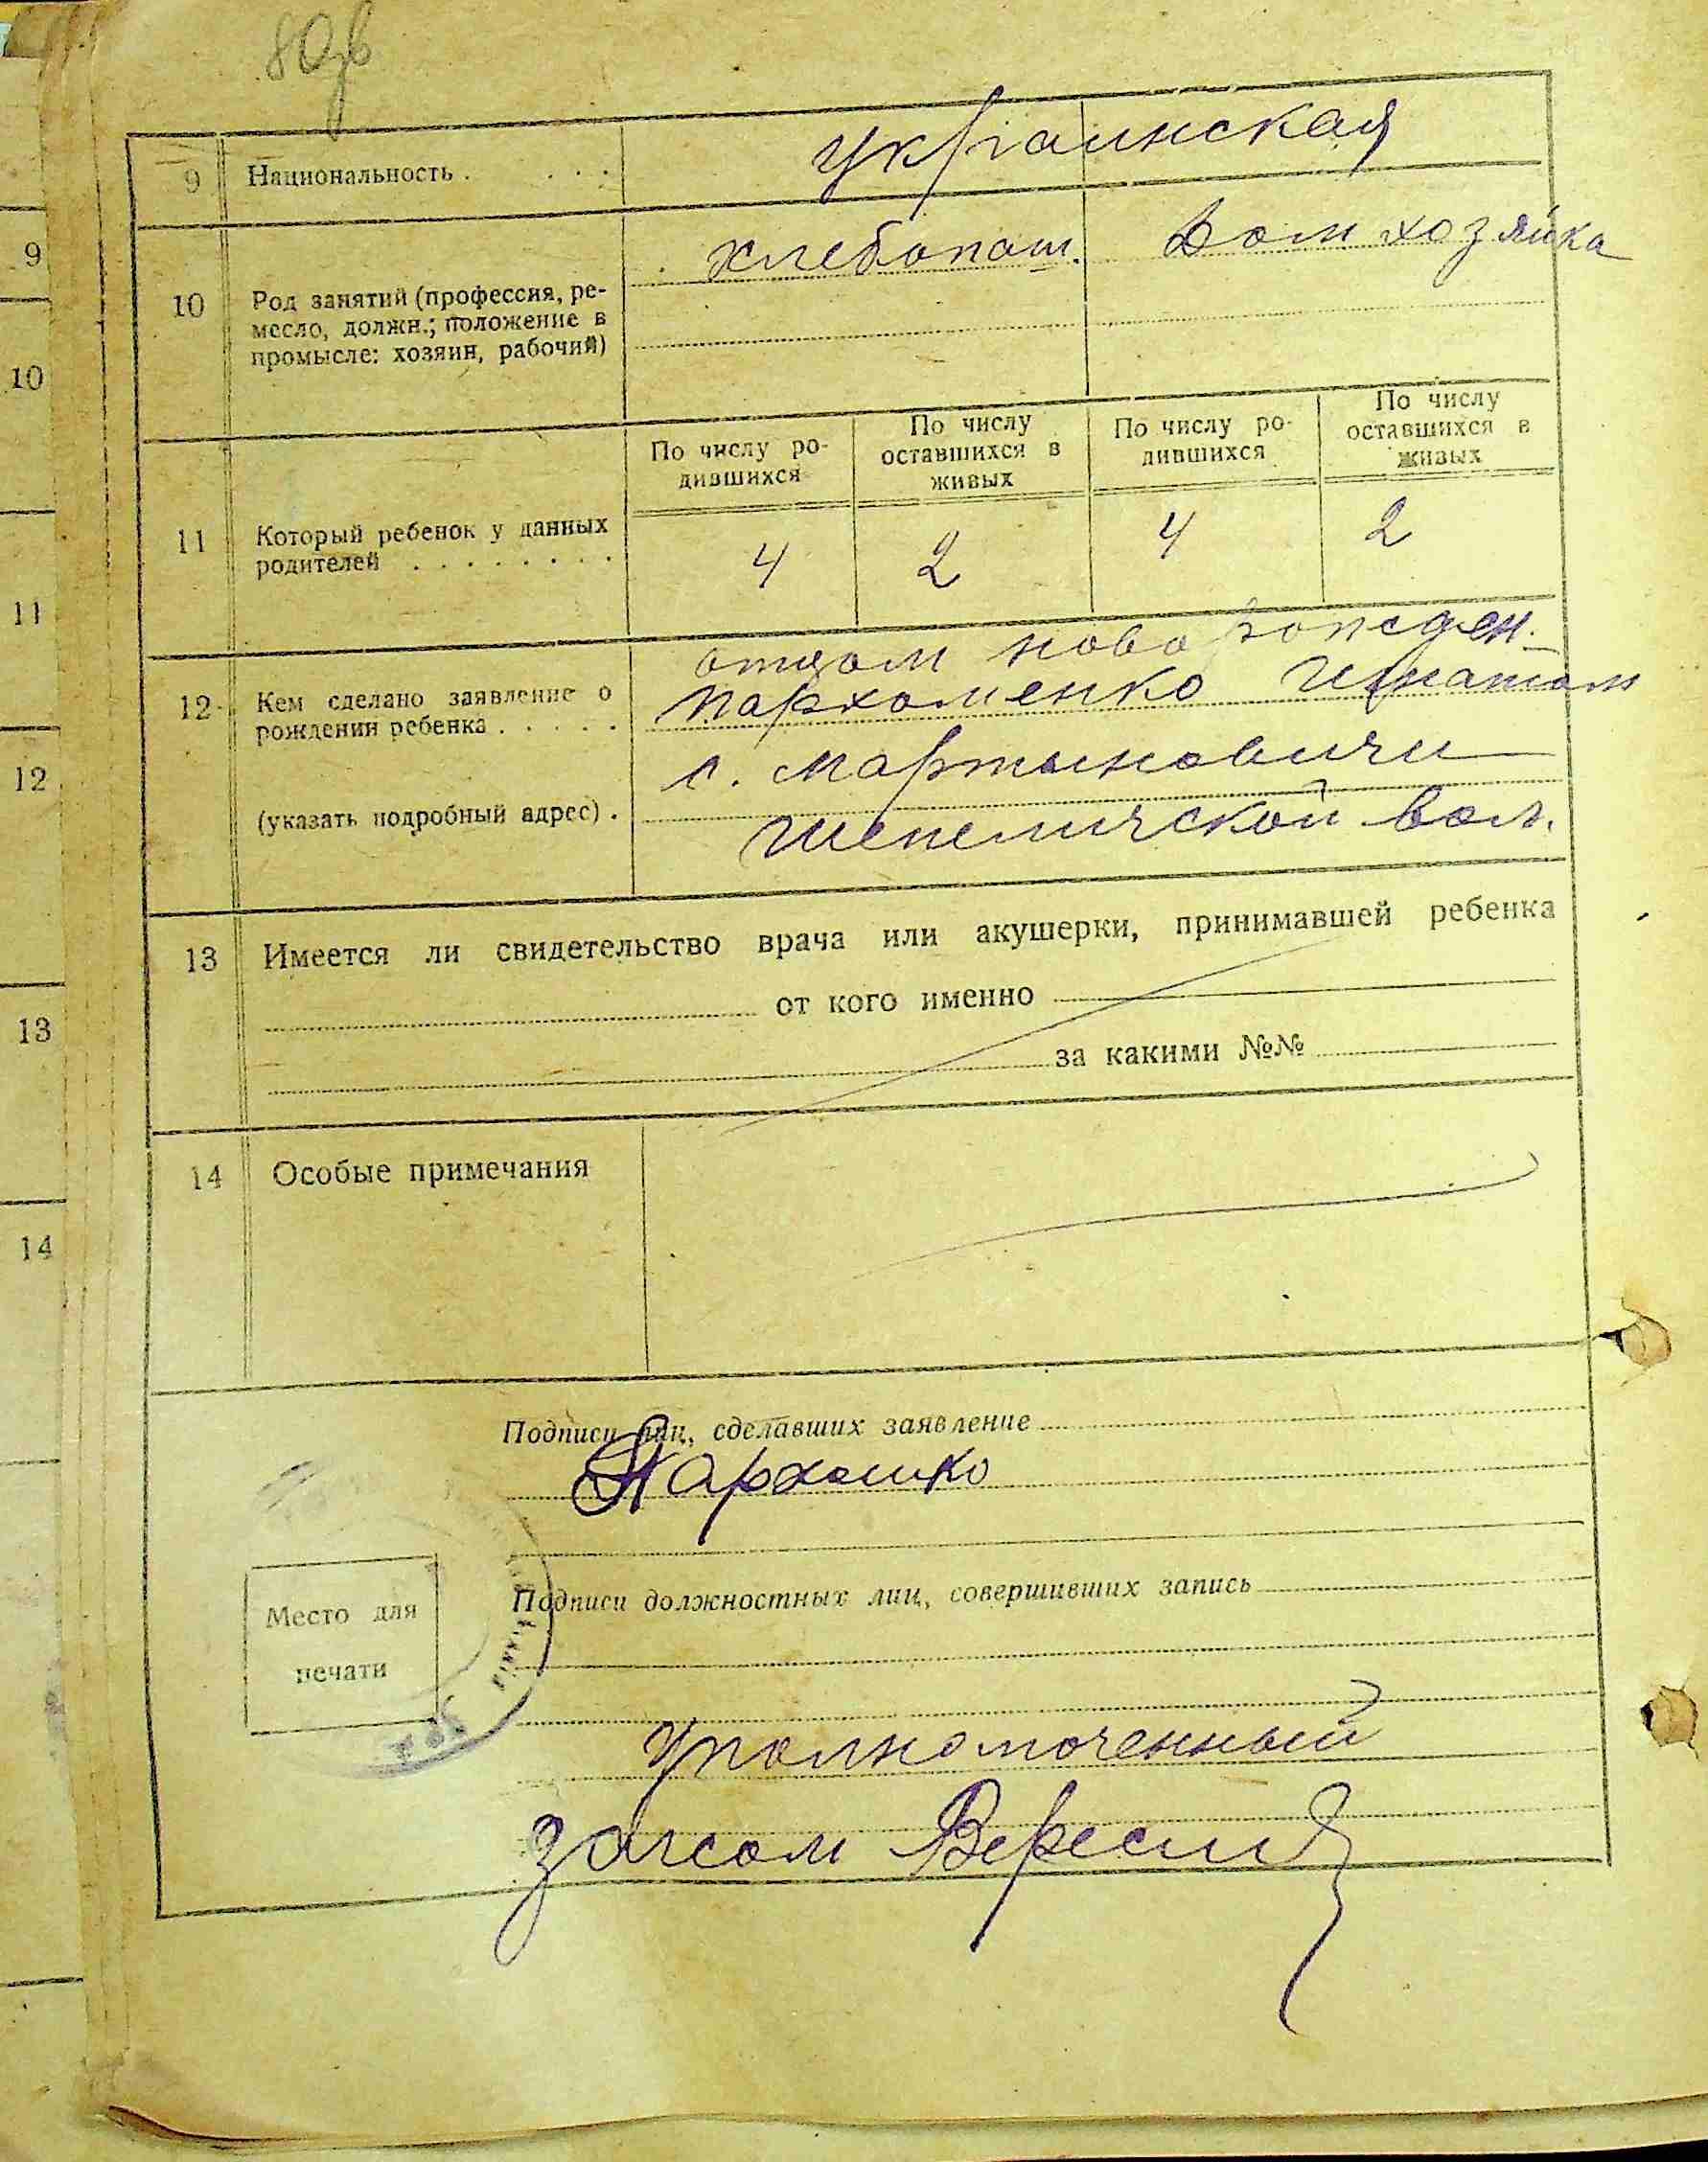 80зв
9 Национальность . . . . украинская
10 Род занятий (профессия, ре-
месло, должн.; положение в
промысле: хозяин, рабочий)
хлебопаш. Дом хозяйка
По числу ро-
дившихся
По числу
оставшихся в
живых
По числу ро-
дившихся
По числу
оставшихся в
живых
11 Который ребенок у данных
родителей . . . . . . . .
4 2 4 2
12 Кем сделано заявление о
рождении ребенка . . . . .
(указать подробный адрес) .
отцом новорожден.
Пархоменко Игнатом
с. Мартыновичи
Шепеличской вол.
13 Имеется ли свидетельство врача или акушерки, принимавшей ребенка
от кого именно
за какими №№
14 Особые примечания
Подписи лиц, сделавших заявление
Пархомко
Место для
печати
Подписи должностных лиц, совершивших запись
Уполномоченный
загсом
9
10
11
12
13
14